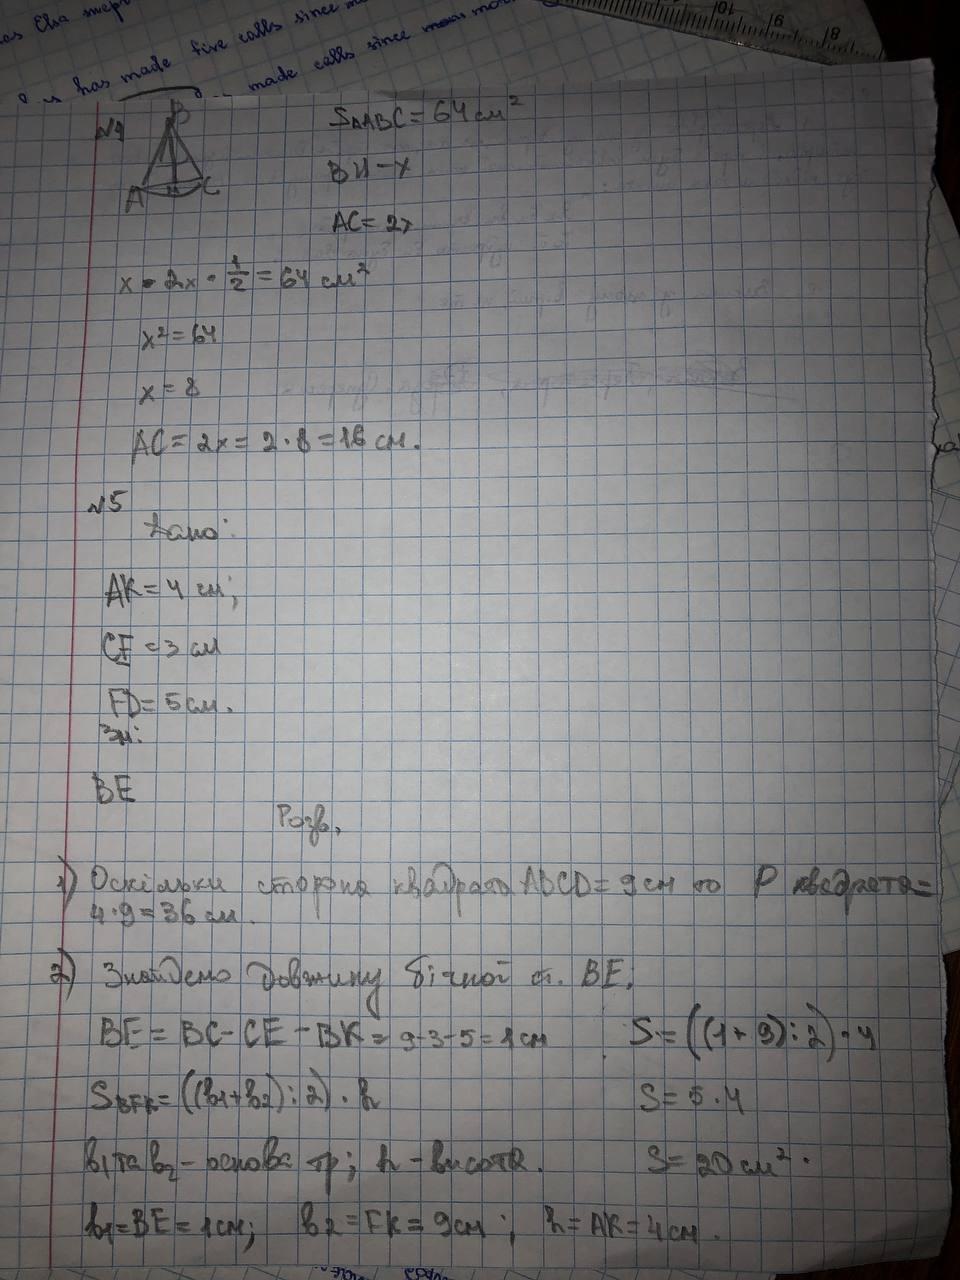 has made five calls since
made calls since
10 9 8
№4
B
A
H
C
S△ABC = 64 см²
BH - x
AC = 2x
x · 2x · 1/2 = 64 см²
x² = 64
x = 8
AC = 2x = 2 · 8 = 16 см.
№5
Дано:
AK = 4 см;
CE = 3 см
FD = 5 см.
Зн:
BE
Розв.
1) Оскільки сторона квадрата ABCD = 9 см то P квадрата =
4·9 = 36 см.
2) Знайдемо довжину бічної ст. BE;
BE = BC - CE - BK = 9-3-5 = 1 см
S = ((1 + 9) : 2) · 4
= ((b₁+b₂) : 2) · h
S = 5 · 4
b₁ та b₂ - основа тр; h - висота.
S = 20 см².
b₁ = BE = 1 см; b₂ = FK = 9 см; h = AK = 4 см.